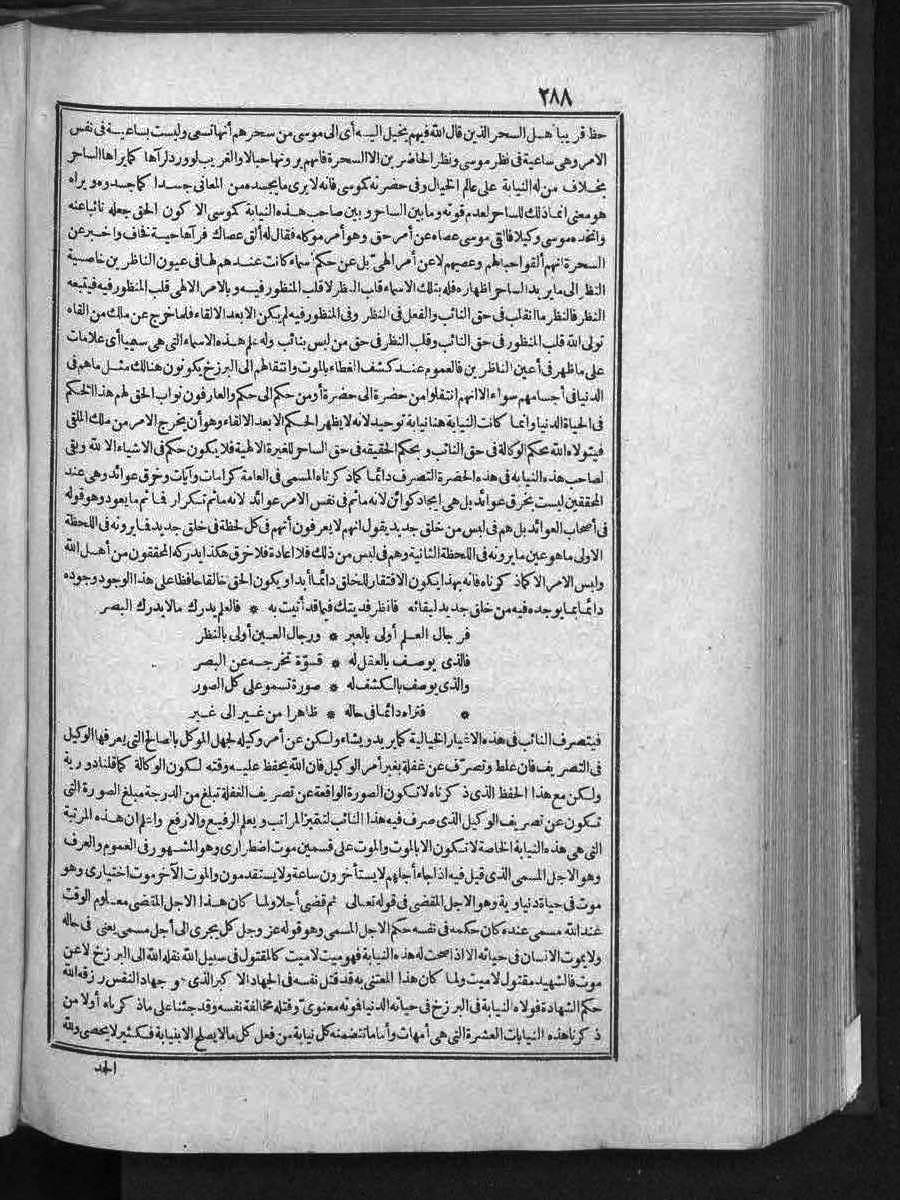 ٢٨٨
حظ قريب اهل السحر الذين قال الله فيهم يخيل اليه أى الى موسى من سحرهم أنها تسعى وليست بساعية فى نفس
الامر وهى ساعية فى نظر موسى ونظر الحاضرين الا السحرة فانهم يرونها حبالا والغريب لو ورد لرآها كما يراها الساحر
بخلاف من له النيابة على عالم الخيال وفى حضرته كموسى فانه لا يرى ما يجسده من المعانى جسدا كما جسدوه ويراه
هو معنى انما ذلك للساحر لعدم قوته وما بين الساحر وبين صاحب هذه النيابة كموسى الا كون الحق جعله نائبا عنه
واتخذه موسى وكيلا فالقى موسى عصاه عن أمر حق وهو أمر موكله فقال له ألق عصاك فرآها حية خاف واخبر عن
السحرة انهم ألقوا حبالهم وعصيهم لا عن أمر الهىّ بل عن حكم أسماء كانت عندهم لها فى عيون الناظرين خاصية
النظر الى ما يريد الساحر اظهاره فله بتلك الاسماء قلب النظر لا قلب المنظور فيه وبالامر الالهى قلب المنظور فيه فيتبعه
النظر فالنظر ما انقلب فى حق النائب والفعل فى النظر وفى المنظور فيه لم يكن الا بعد الالقاء فلما خرج عن ملك من القاه
تولى الله قلب المنظور فى حق النائب وقلب النظر فى حق من ليس بنائب وله علم هذه الاسماء التى هى سيميا أى علامات
على ما ظهر فى أعين الناظرين فالعموم عند كشف الغطاء بالموت وانتقالهم الى البرزخ يكونون هنالك مثل ما هم فى
الدنيا فى أجسامهم سواء الا انهم انتقلوا من حضرة الى حضرة أو من حكم الى حكم والعارفون نواب الحق لهم هذا الحكم
فى الحياة الدنيا وانما كانت النيابة هنا نيابة توحيد لانه لا يظهر الحكم الا بعد الالقاء وهو أن يخرج الامر من ملك الملقى
فيتولاه الله بحكم الوكالة فى حق النائب وبحكم الحقيقة فى حق الساحر للغيرة الالهية فلا يكون حكم فى الاشياء الا لله وبقى
لصاحب هذه النيابة فى هذه الحضرة التصرف دائما كما ذكرناه المسمى فى العامة كرامات وآيات وخرق عوائد وهى عند
المحققين ليست بخرق عوائد بل هى ايجاد كوائن لانه ما ثم فى نفس الامر عوائد لانه ما ثم تكرار فما ثم ما يعود وهو قوله
فى أصحاب العوائد بل هم فى لبس من خلق جديد يقول انهم لا يعرفون أنهم فى كل لحظة فى خلق جديد فما يرونه فى اللحظة
الاولى ما هو عين ما يرونه فى اللحظة الثانية وهم فى لبس من ذلك فلا اعادة فلا خرق هكذا يدركه المحققون من أهل الله
وليس الامر الا كما ذكرناه فانه بهذا يكون الافتقار للخلق دائما أبدا ويكون الحق خالقا حافظا على هذا الوجود وجوده
دائما بما يوجده فيه من خلق جديد لبقائه فانظر فديتك فيما قد أتيت به * فالعلم يدرك ما لا يدرك البصر
فرجال العلم أولى بالعبر * ورجال العين أولى بالنظر
فالذى يوصف بالعقل له * قوّة تخرجه عن البصر
والذى يوصف بالكشف له * صورة تسمو على كل الصور
* فتراه دائما فى حاله * ظاهرا من غير الى غير
فيتصرف النائب فى هذه الاغيار الخيالية كما يريد ويشاء ولكن عن أمر وكيله لجهل الموكل بالمصالح التى يعرفها الوكيل
فى التصريف فان غلط وتصرّف عن غفلة بغير أمر الوكيل فان الله يحفظ عليه وقته لكون الوكالة كما قلنا دورية
ولكن مع هذا الحفظ الذى ذكرناه لا تكون الصورة الواقعة عن تصريف الغفلة تبلغ من الدرجة مبلغ الصورة التى
تكون عن تصريف الوكيل الذى صرف فيه هذا النائب لتتميز المراتب ويعلم الرفيع والارفع واعلم ان هذه المرتبة
التى هى هذه النيابة الخاصة لا تكون الا بالموت والموت على قسمين موت اضطرارى وهو المشهور فى العموم والعرف
وهو الاجل المسمى الذى قيل فيه اذا جاء أجلهم لا يستأخرون ساعة ولا يستقدمون والموت الآخر موت اختيارى وهو
موت فى حياة دنياوية وهو الاجل المقضى فى قوله تعالى ثم قضى أجلا ولما كان هذا الاجل المقضى معلوم الوقت
عند الله مسمى عنده كان حكمه فى نفسه حكم الاجل المسمى وهو قوله عز وجل كل يجرى الى أجل مسمى يعنى فى حاله
ولا يموت الانسان فى حياته الا اذا صحت له هذه النيابة فهو ميت لا ميت كالمقتول فى سبيل الله نقله الله الى البرزخ لا عن
موت فالشهيد مقتول لا ميت ولما كان هذا المعتنى به قد قتل نفسه فى الجهاد الاكبر الذى هو جهاد النفس رزقه الله
حكم الشهادة فولاه النيابة فى البرزخ فى حياته الدنيا فموته معنوى وقتله مخالفة نفسه وقد جئنا على ما ذكرناه أولا من
ذكرنا هذه النيابات العشرة التى هى أمهات وأما ما تتضمنه كل نيابة من فعل كل ما لا يصلح الا بنيابة فكثير لا يحصى ولله
الحد